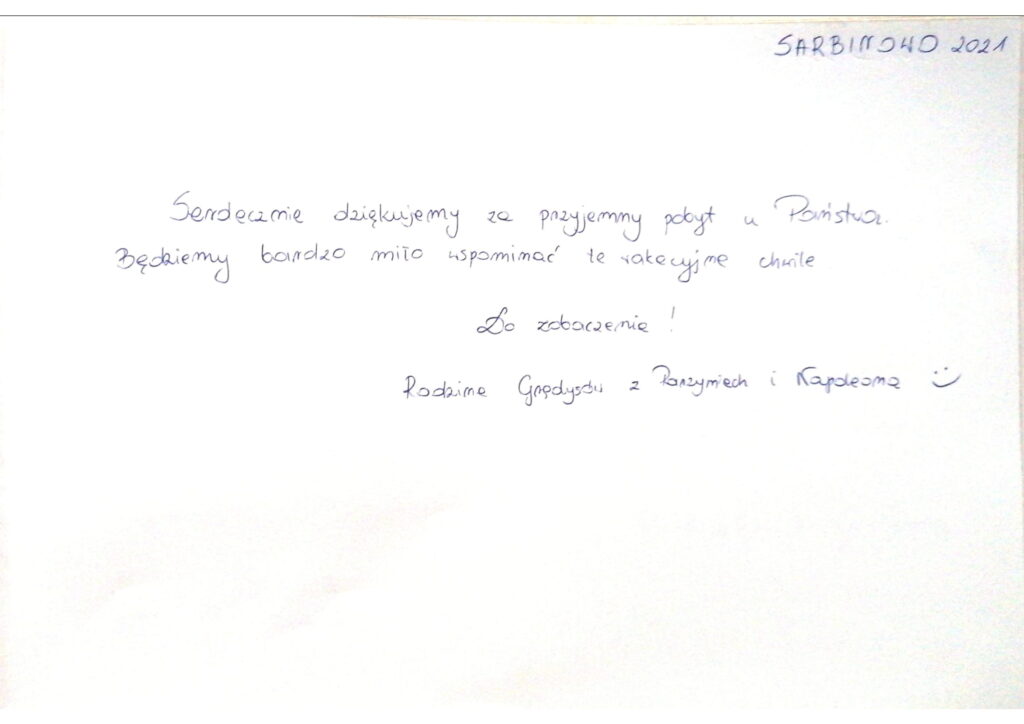 SARBINOWO 2021
Serdęcznie dziękujemy za przyjemny pobyt u Państwa.
Będziemy bardzo miło wspominać te wakacyjne chwile
Do zobaczenia!
Rodzina Grędysów z Parzymiech i Napoleona :)